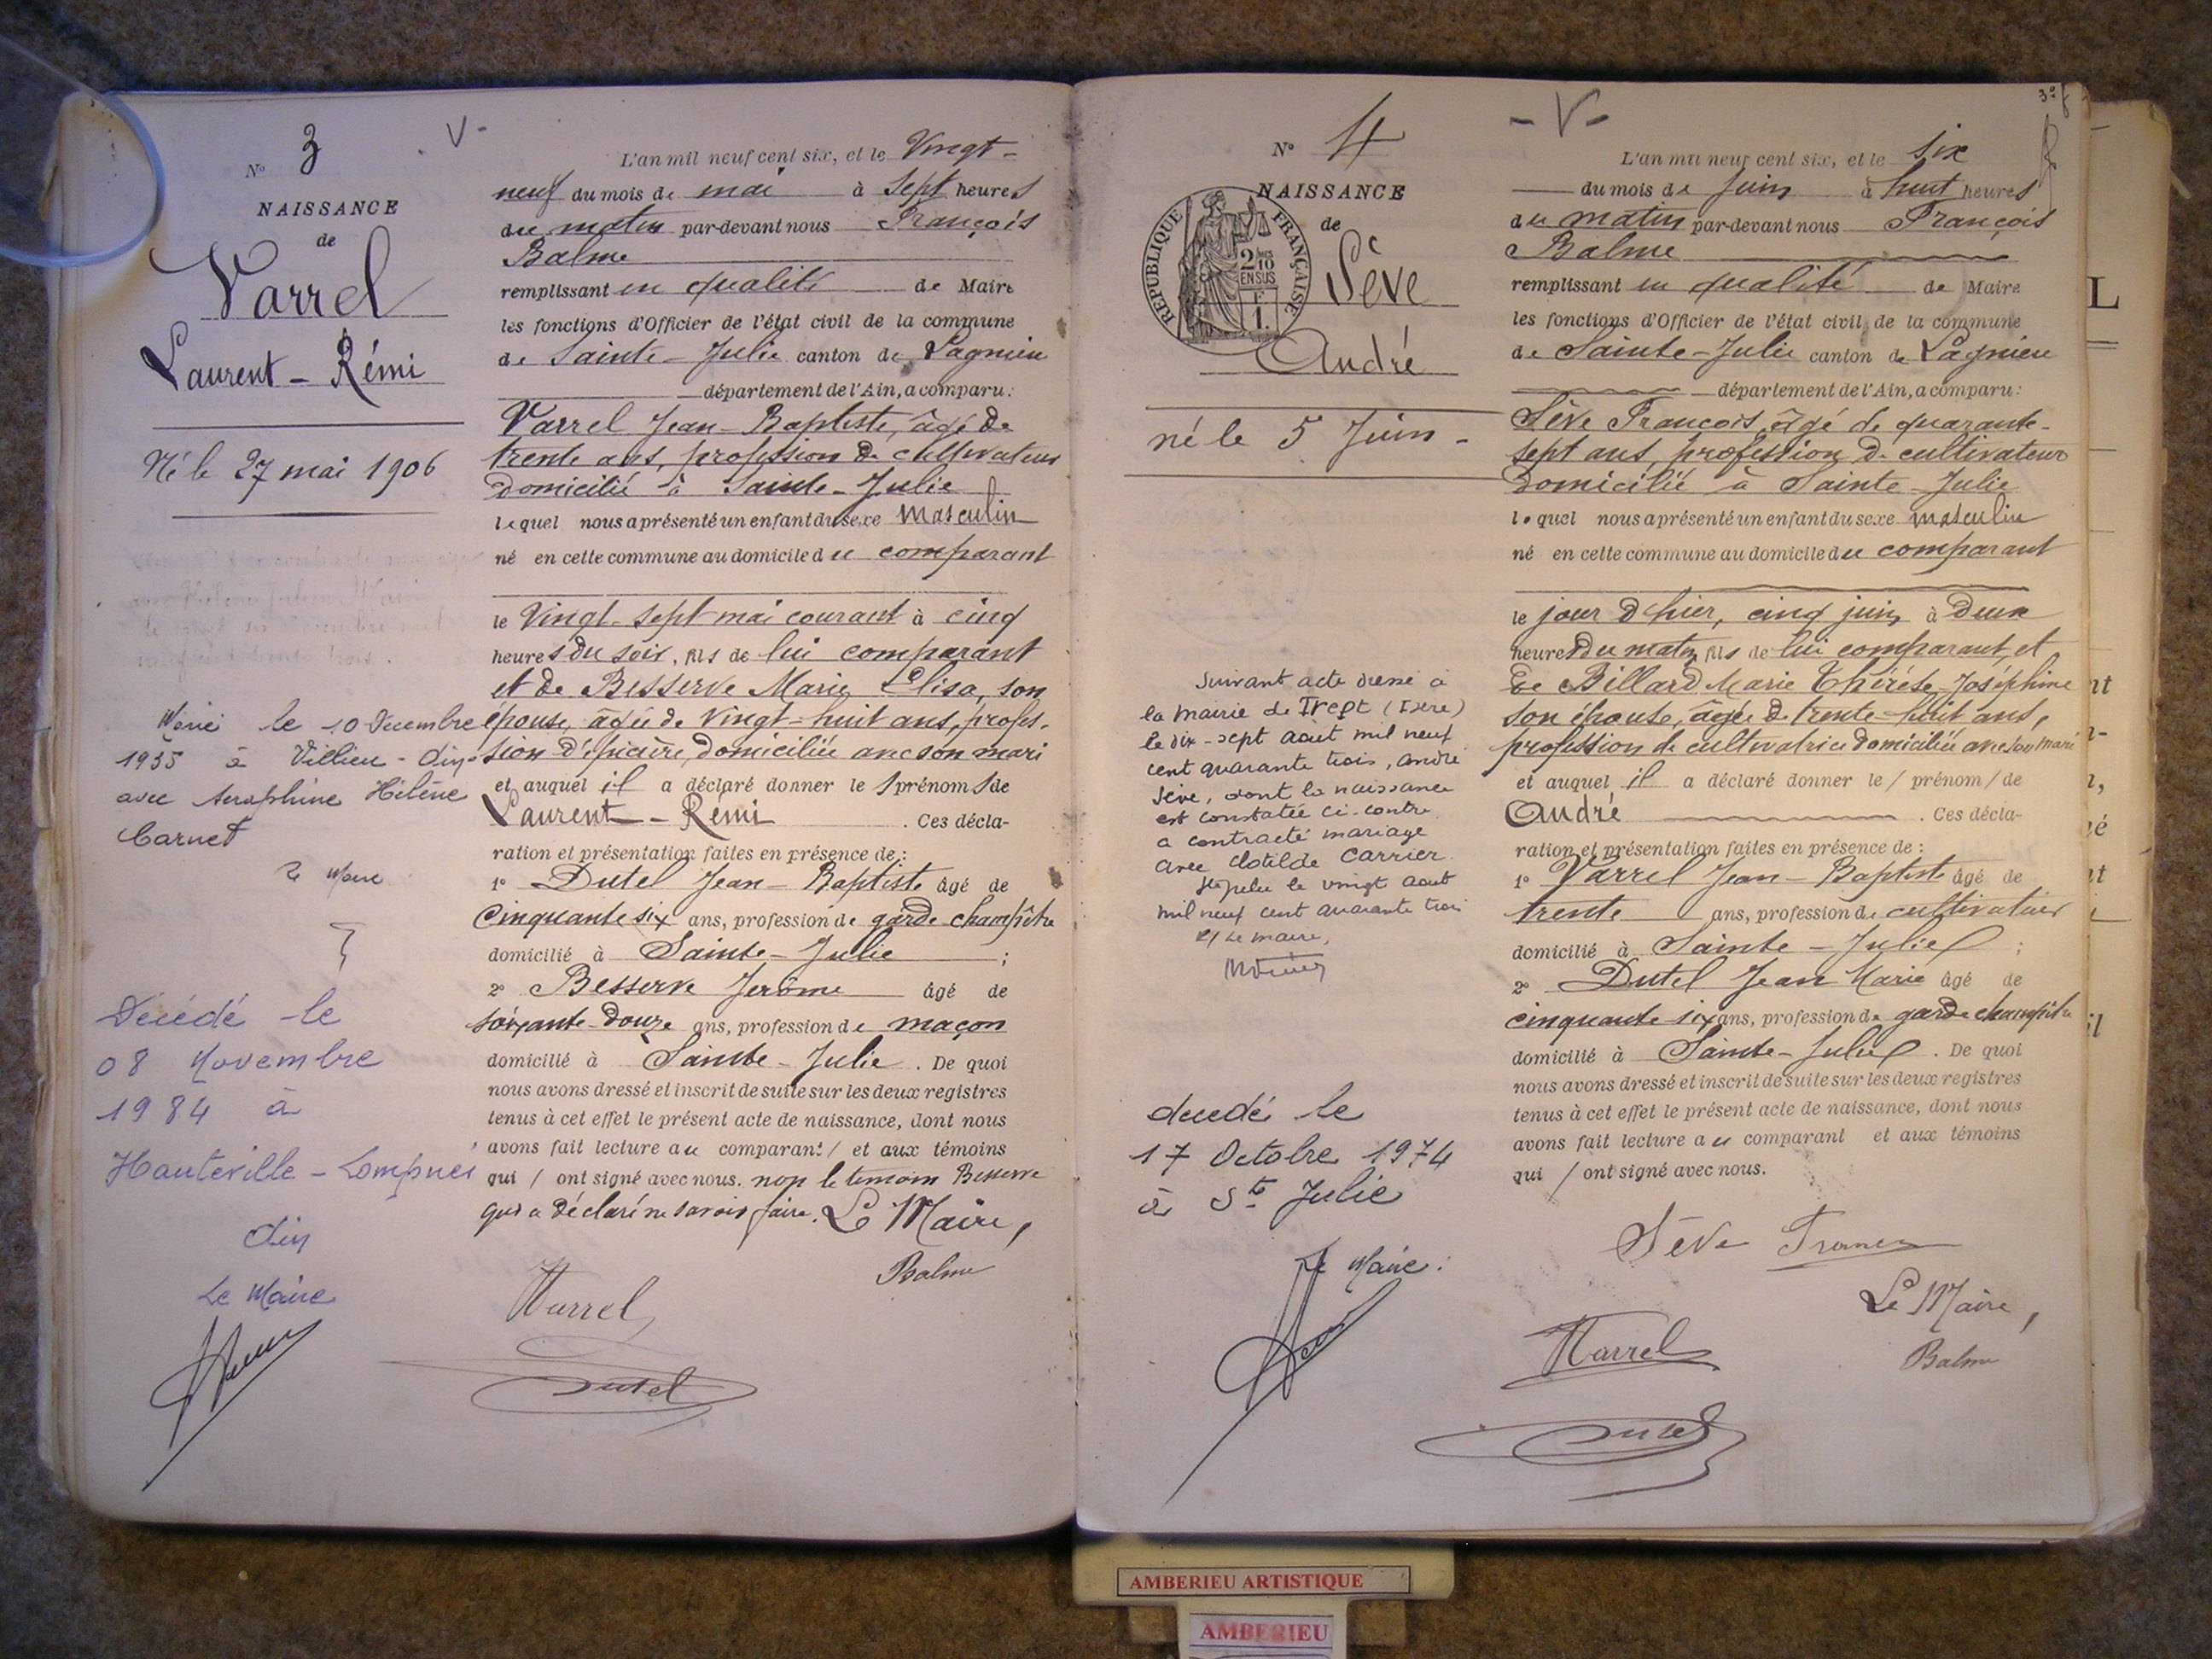 N° 3
V -
NAISSANCE
de
Varrel
Laurent - Rémi
Né le 27 mai 1906
Marié le 10 Décembre
1935 à Villieu - Ain -
avec Seraphine Hélène
Carnet
Le Maire
Décédé le
08 Novembre
1984 à
Hauteville - Lompnes
Ain
Le Maire
L'an mil neuf cent six, et le Vingt-
neuf du mois de mai à Sept heures
du matin par-devant nous François
Balme
remplissant en qualité de Maire
les fonctions d'Officier de l'état civil de la commune
de Sainte - Julie canton de Lagnieu
département de l'Ain, a comparu :
Varrel Jean - Baptiste, âgé de
trente ans, profession de cultivateur
domicilié à Sainte - Julie
lequel nous a présenté un enfant du sexe masculin
né en cette commune au domicile du comparant
le Vingt-sept mai courant à cinq
heures du soir, fils de lui comparant
et de Besserve Marie Elisa, son
épouse, âgée de vingt-huit ans, profes-
sion d'épicière, domiciliée avec son mari
et auquel il a déclaré donner les prénoms de
Laurent - Rémi . Ces décla-
ration et présentation faites en présence de :
1° Dutel Jean - Baptiste âgé de
Cinquante six ans, profession de garde champêtre
domicilié à Sainte - Julie ;
2° Besserve Jérôme âgé de
soixante-douze ans, profession de maçon
domicilié à Sainte - Julie . De quoi
nous avons dressé et inscrit de suite sur les deux registres
tenus à cet effet le présent acte de naissance, dont nous
avons fait lecture au comparant / et aux témoins
qui / ont signé avec nous. non le témoin Besserve
qui a déclaré ne savoir faire. Le Maire,
Balme
Varrel
Dutel
3e f
N° 4
- V -
NAISSANCE
de
REPUBLIQUE FRANÇAISE
2/10 EN SUS
F 1.
Sève
André
né le 5 Juin -
Suivant acte dressé à
la mairie de Trept (Isère)
le dix-sept août mil neuf
cent quarante trois, André
Sève, dont la naissance
est constatée ci-contre
a contracté mariage
avec Clotilde Carrier.
Ste Julie le vingt août
mil neuf cent quarante trois
Le maire,
décédé le
17 Octobre 1974
à Ste Julie
Le Maire :
L'an mil neuf cent six, et le six
du mois de Juin à huit heures
du matin par-devant nous François
Balme
remplissant en qualité de Maire
les fonctions d'Officier de l'état civil de la commune
de Sainte - Julie canton de Lagnieu
département de l'Ain, a comparu :
Sève François, âgé de quarante-
sept ans, profession de cultivateur
domicilié à Sainte Julie
lequel nous a présenté un enfant du sexe masculin
né en cette commune au domicile du comparant
le jour d'hier, cinq juin, à deux
heures du matin, fils de lui comparant, et
de Billard Marie Thérèse Joséphine
son épouse, âgée de trente-huit ans,
profession de cultivatrice domiciliée avec son mari
et auquel il a déclaré donner le / prénom / de
André . Ces décla-
ration et présentation faites en présence de :
1° Varrel Jean - Baptiste âgé de
trente ans, profession de cultivateur
domicilié à Sainte - Julie ;
2° Dutel Jean Marie âgé de
cinquante six ans, profession de garde champêtre
domicilié à Sainte - Julie . De quoi
nous avons dressé et inscrit de suite sur les deux registres
tenus à cet effet le présent acte de naissance, dont nous
avons fait lecture au comparant et aux témoins
qui / ont signé avec nous.
Sève Francois
Le Maire,
Varrel
Balme
Dutel
AMBERIEU ARTISTIQUE
AMBERIEU